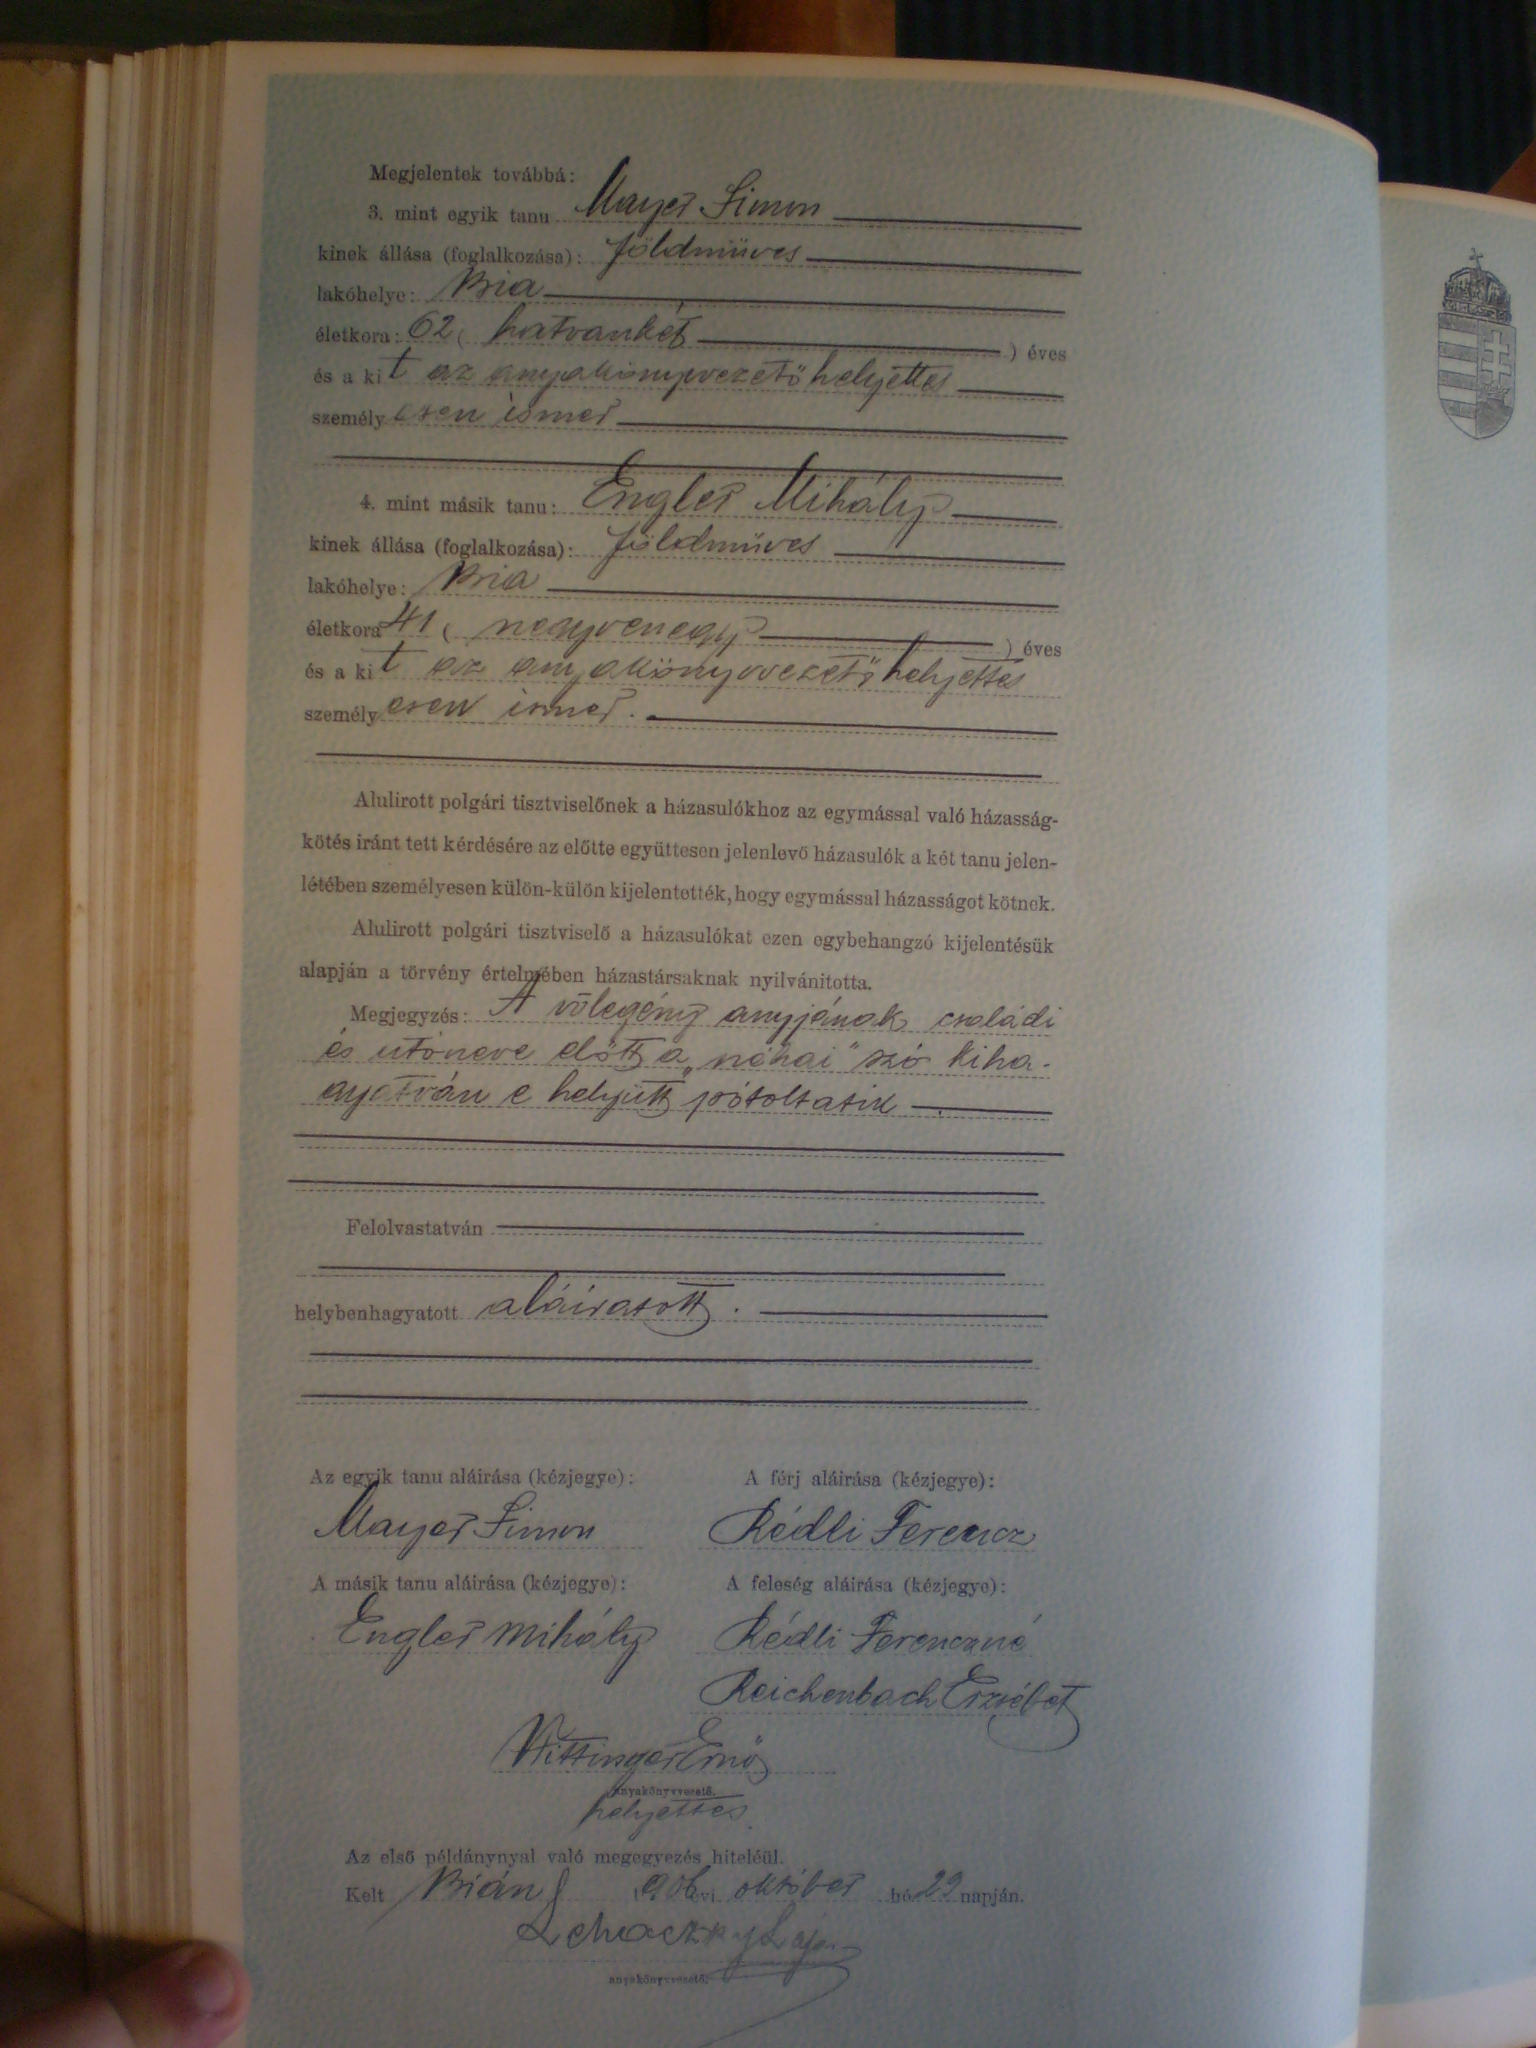 Megjelentek továbbá:
3. mint egyik tanu Mayer Simon
kinek állása (foglalkozása): földmüves
lakóhelye: Bia
életkora: 62 ( hatvankét ) éves
és a kit az anyakönyvvezető helyettes
személyesen ismer
4. mint másik tanu: Engler Mihály
kinek állása (foglalkozása): földmüves
lakóhelye: Bia
életkora 41 ( negyvenegy ) éves
és a kit az anyakönyvvezető helyettes
személyesen ismer.
Alulirott polgári tisztviselőnek a házasulókhoz az egymással való házasság-
kötés iránt tett kérdésére az előtte együttesen jelenlevő házasulók a két tanu jelen-
létében személyesen külön-külön kijelentették, hogy egymással házasságot kötnek.
Alulirott polgári tisztviselő a házasulókat ezen egybehangzó kijelentésük
alapján a törvény értelmében házastársaknak nyilvánitotta.
Megjegyzés: A vőlegény anyjának családi
és utóneve előtt a „néhai" szó kiha-
gyatván e helyütt pótoltatik
Felolvastatván
helybenhagyatott aláiratott.
Az egyik tanu aláirása (kézjegye): A férj aláirása (kézjegye):
Mayer Simon Rédli Ferencz
A másik tanu aláirása (kézjegye): A feleség aláirása (kézjegye):
Engler Mihály Rédli Ferenczné
Reichenbach Erzsébet
Wittinger Ernő
anyakönyvvezető.
helyettes
Az első példánynyal való megegyezés hiteléül.
Kelt Bián 1906 évi október hó 29 napján.
anyakönyvvezető.